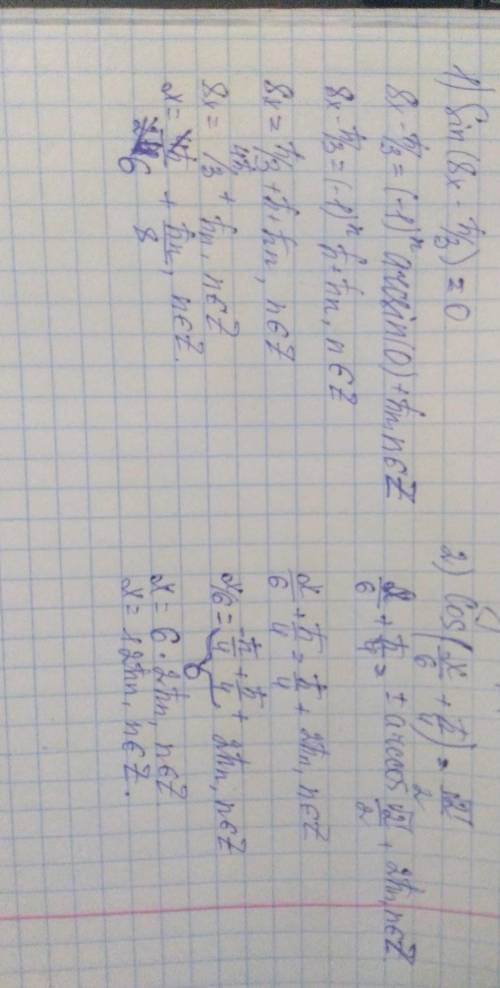 1) Sin(8x - π/3) = 0
8x - π/3 = (-1)ⁿ arcsin(0) + πn, n∈Z
8x - π/3 = (-1)ⁿ π + πn, n∈Z
8x = π/3 + π + πn, n∈Z
8x = 4π/3 + πn, n∈Z
x = π/6 + πn/8, n∈Z.
2) Cos(x/6 + π/4) = √2/2
x/6 + π/4 = ± arccos √2/2 + 2πn, n∈Z
x/6 + π/4 = π/4 + 2πn, n∈Z
x/6 = -π/4 + π/4 + 2πn, n∈Z
0
x = 6·2πn, n∈Z
x = 12πn, n∈Z.